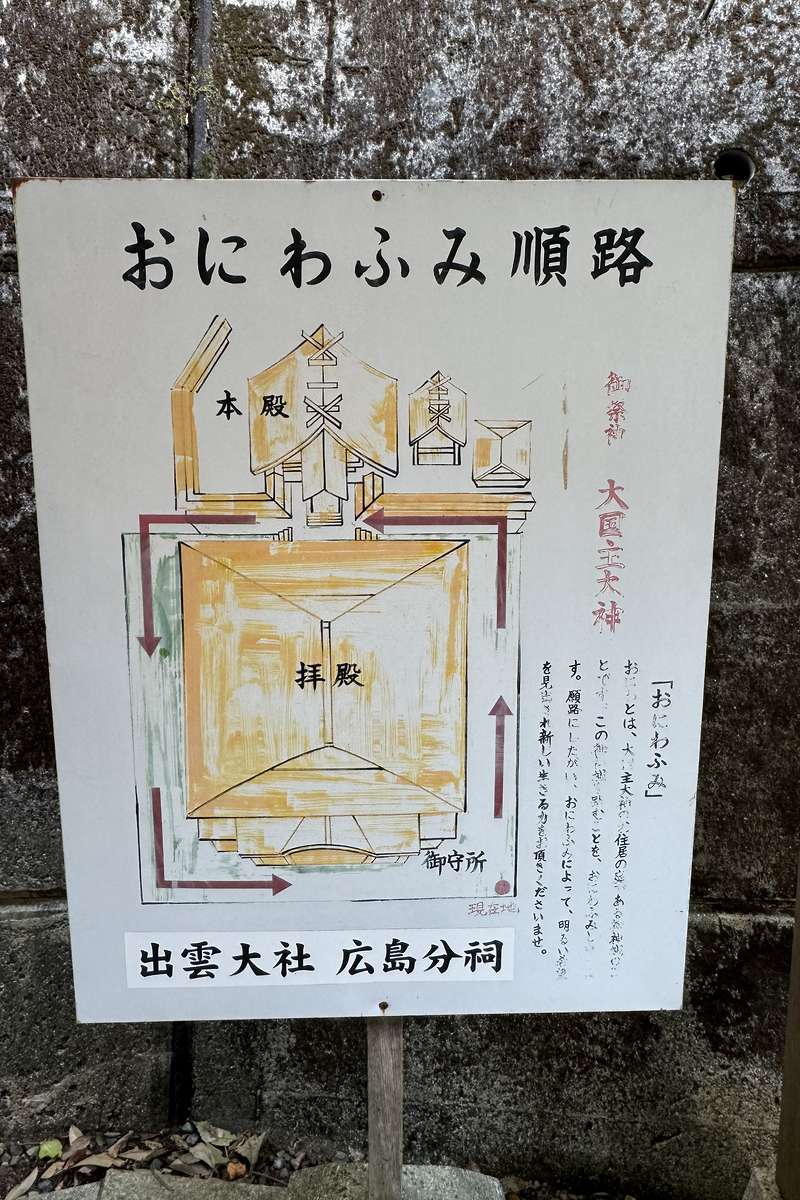 おにわふみ順路
本殿
拝殿
御守所
現在地
御祭神
大国主大神
「おにわふみ」
とは、
主大神の 住居の ある
とです。この 踏むことを、おにわふみ
す。順路にしたがい、おにわふみによって、明るい希望
を見出され新しい生きる力をお頂きくださいませ。
出雲大社 広島分祠